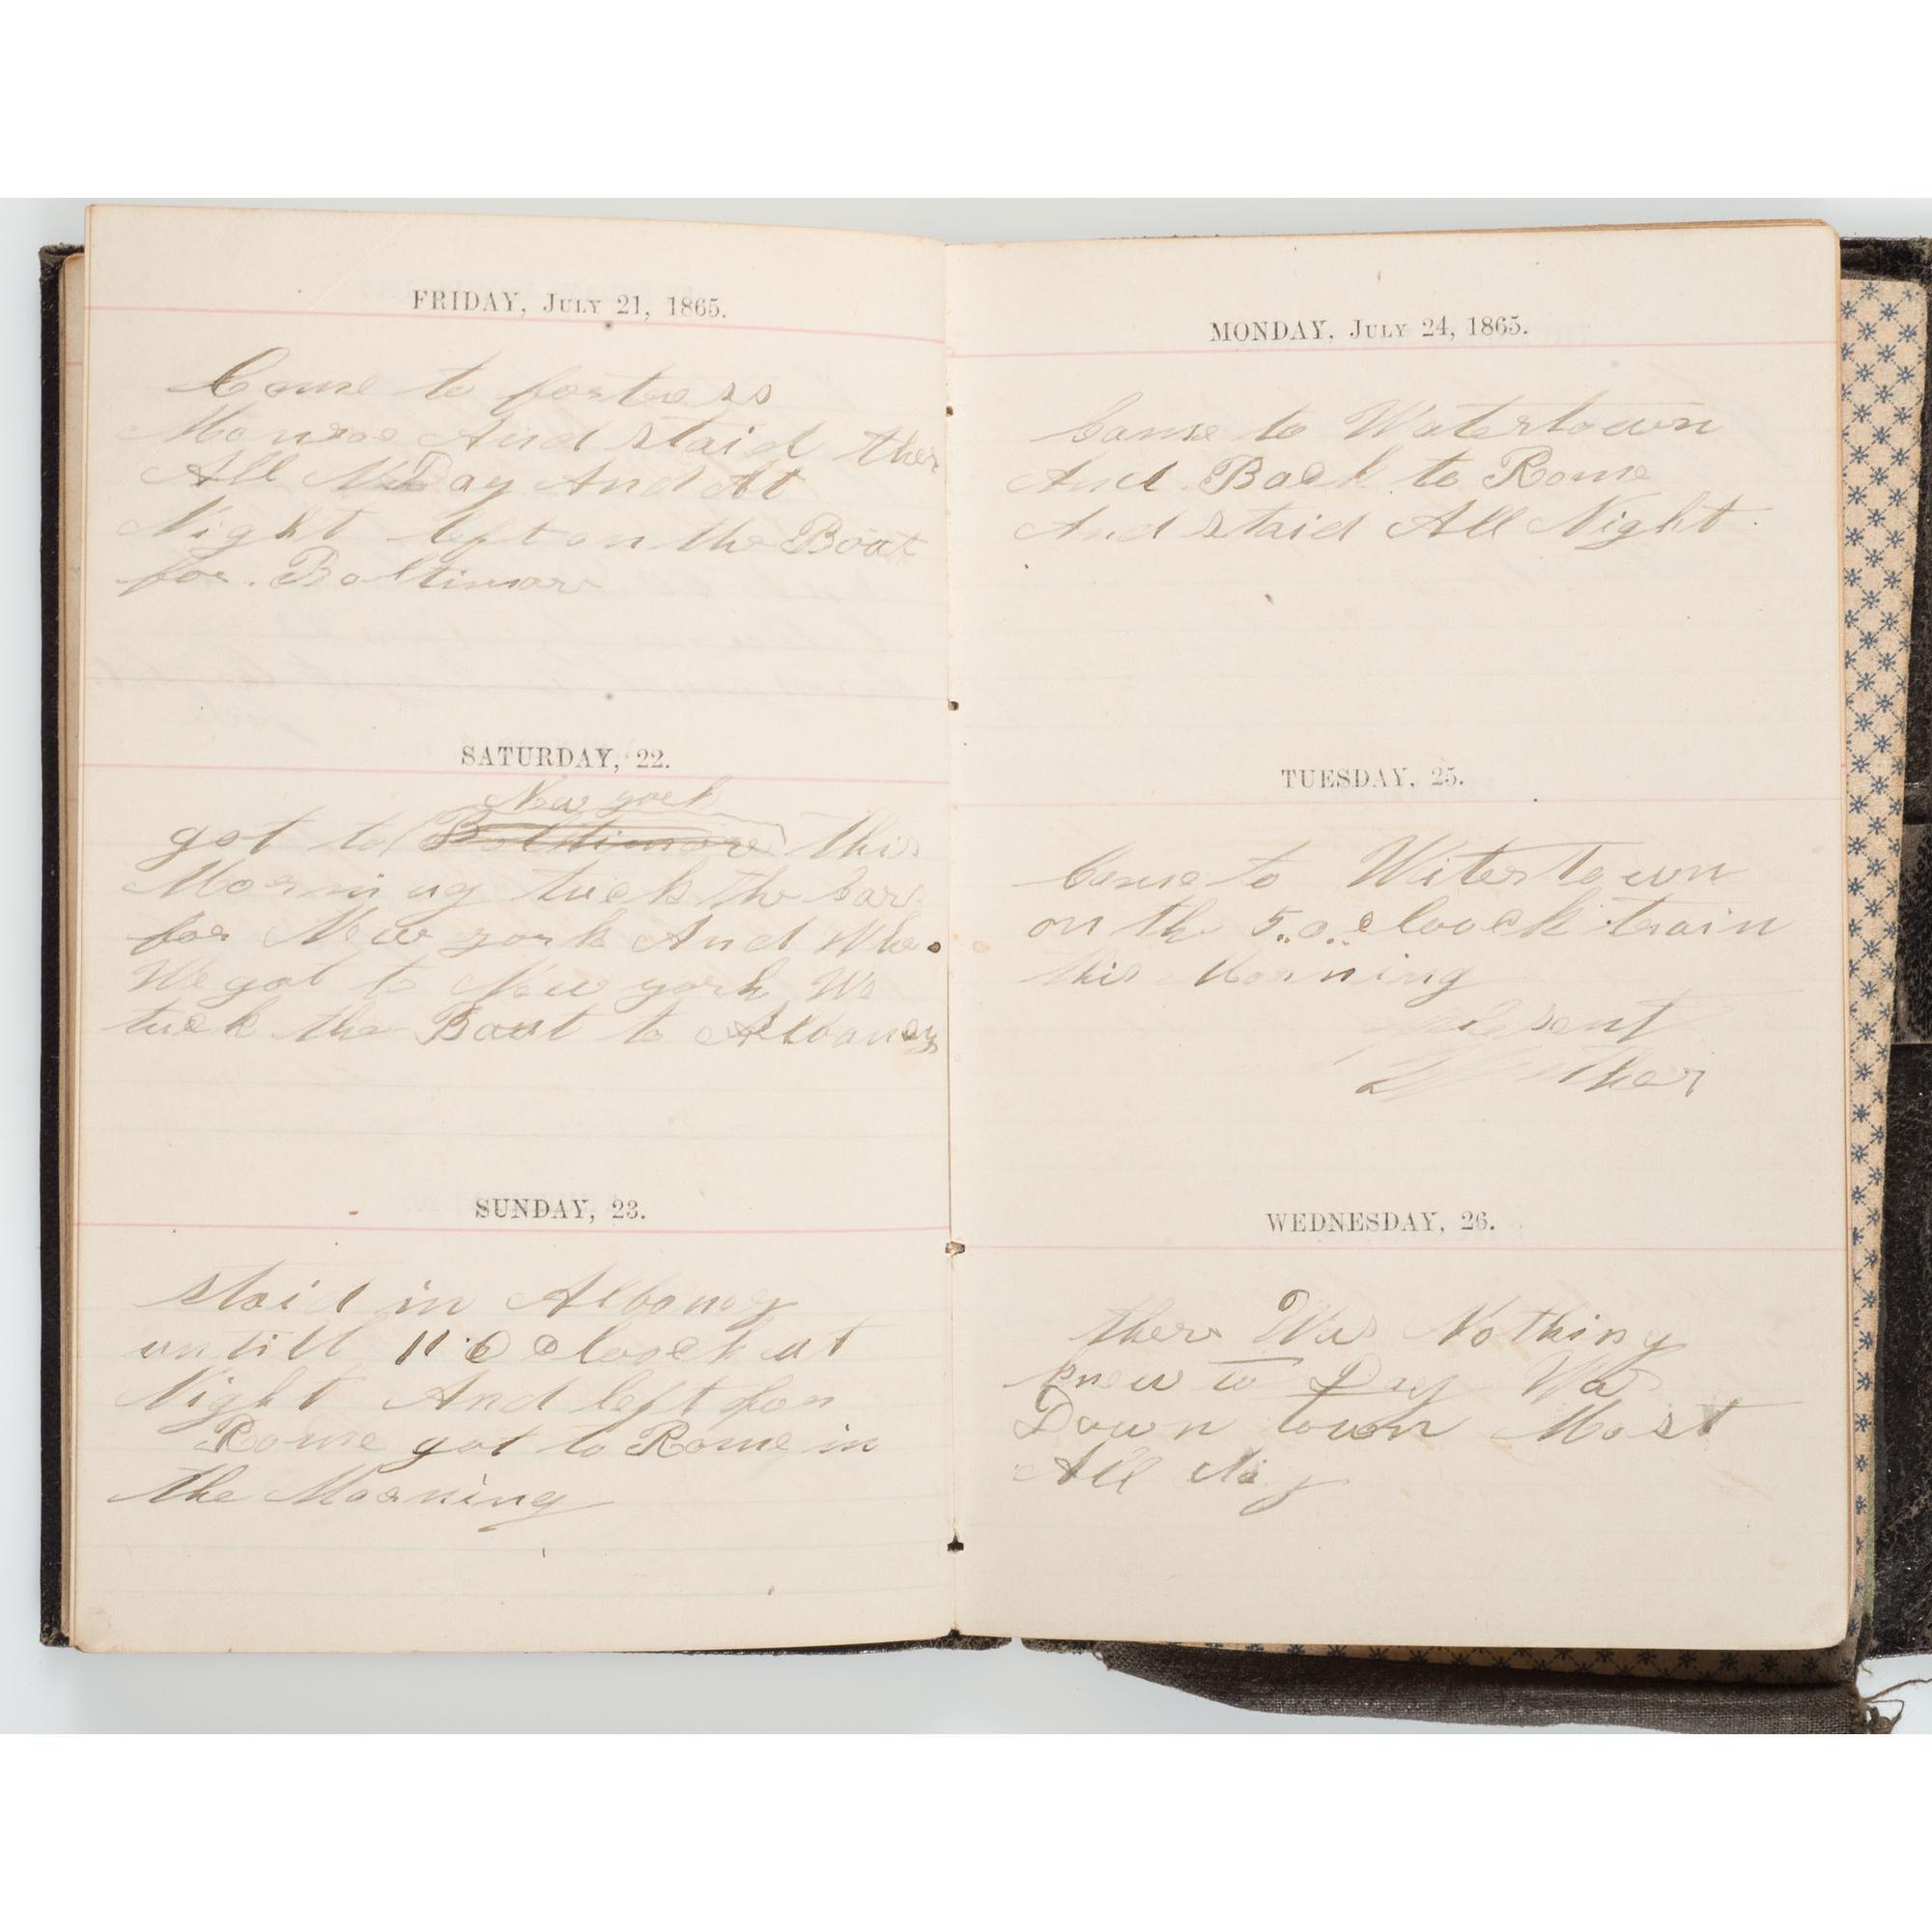 FRIDAY, JULY 21, 1865.
Came to fortress
Monroe And staid ther
All Day And At
Night left on the Boat
for Baltimore
SATURDAY, 22.
New york
got to Baltimore this
Morning tuck the Car
for New york And Whe
We got to New york We
tuck the Boat to Albaney
SUNDAY, 23.
staid in Albany
untill 11 O clock at
Night And left for
Rome got to Rome in
the Morning
MONDAY, JULY 24, 1865.
Came to Watertown
And Back to Rome
And staid All Night
TUESDAY, 25.
Came to Watertown
on the 5 o clock train
this Morning
plesent
Wether
WEDNESDAY, 26.
ther Was Nothing
knew to Day Was
Down town Most
All Day